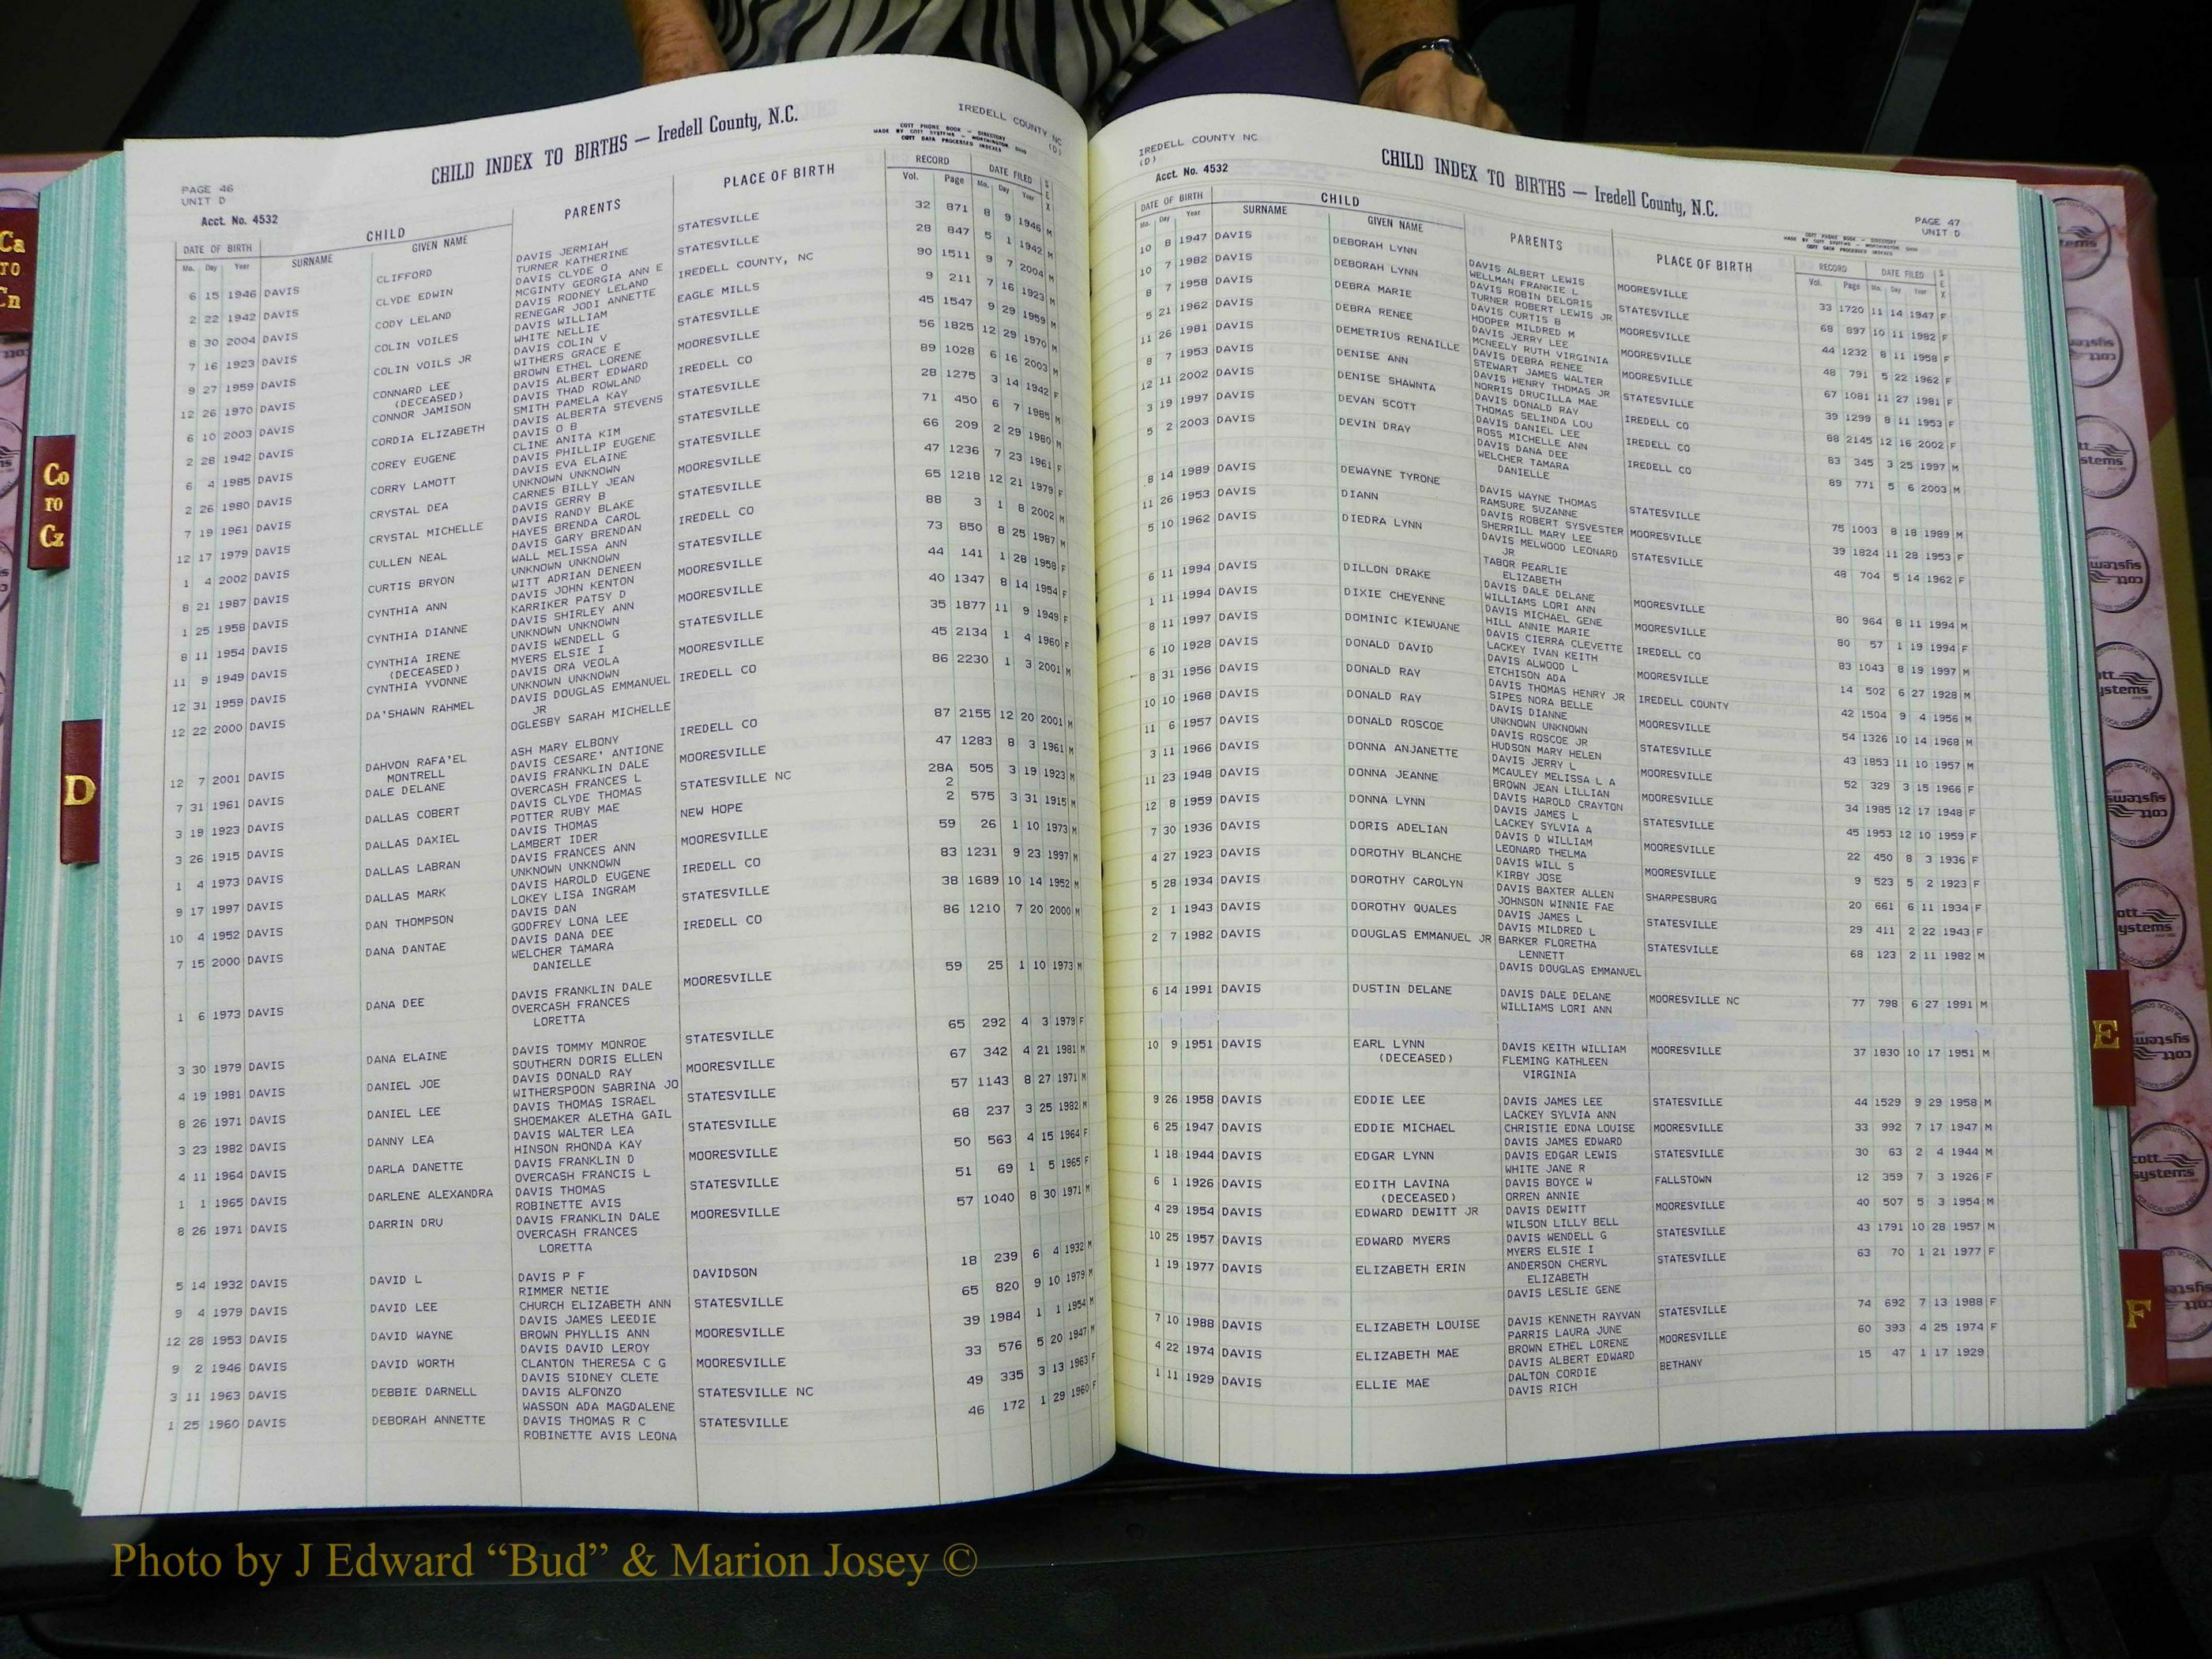 IREDELL COUNTY NC
(D)
CHILD INDEX TO BIRTHS — Iredell County, N.C.
COTT PHONE BOOK — DIRECTORY
MADE BY COTT SYSTEMS — WORTHINGTON OHIO
COTT DATA PROCESSED INDEXES
PAGE 46
UNIT D
Acct. No. 4532
DATE OF BIRTH CHILD PARENTS PLACE OF BIRTH RECORD DATE FILED SEX
Mo. Day Year SURNAME GIVEN NAME Vol. Page Mo. Day Year
6 15 1946 DAVIS CLIFFORD DAVIS JERMIAH STATESVILLE 32 871 8 9 1946 M
TURNER KATHERINE
2 22 1942 DAVIS CLYDE EDWIN DAVIS CLYDE O STATESVILLE 28 847 5 1 1942 M
MCGINTY GEORGIA ANN E
8 30 2004 DAVIS CODY LELAND DAVIS RODNEY LELAND IREDELL COUNTY, NC 90 1511 9 7 2004 M
RENEGAR JODI ANNETTE
7 16 1923 DAVIS COLIN VOILES DAVIS WILLIAM EAGLE MILLS 9 211 7 16 1923 M
WHITE NELLIE
9 27 1959 DAVIS COLIN VOILS JR DAVIS COLIN V STATESVILLE 45 1547 9 29 1959 M
WITHERS GRACE E
12 26 1970 DAVIS CONNARD LEE BROWN ETHEL LORENE MOORESVILLE 56 1825 12 29 1970 M
(DECEASED) DAVIS ALBERT EDWARD
6 10 2003 DAVIS CONNOR JAMISON DAVIS THAD ROWLAND IREDELL CO 89 1028 6 16 2003 M
SMITH PAMELA KAY
2 28 1942 DAVIS CORDIA ELIZABETH DAVIS ALBERTA STEVENS STATESVILLE 28 1275 3 14 1942 F
DAVIS O B
6 4 1985 DAVIS COREY EUGENE CLINE ANITA KIM STATESVILLE 71 450 6 7 1985 M
DAVIS PHILLIP EUGENE
2 26 1980 DAVIS CORRY LAMOTT DAVIS EVA ELAINE STATESVILLE 66 209 2 29 1980 M
UNKNOWN UNKNOWN
7 19 1961 DAVIS CRYSTAL DEA CARNES BILLY JEAN MOORESVILLE 47 1236 7 23 1961 F
DAVIS GERRY B
12 17 1979 DAVIS CRYSTAL MICHELLE DAVIS RANDY BLAKE STATESVILLE 65 1218 12 21 1979 F
HAYES BRENDA CAROL
1 4 2002 DAVIS CULLEN NEAL DAVIS GARY BRENDAN IREDELL CO 88 3 1 8 2002 M
WALL MELISSA ANN
8 21 1987 DAVIS CURTIS BRYON UNKNOWN UNKNOWN STATESVILLE 73 850 8 25 1987 M
WITT ADRIAN DENEEN
1 25 1958 DAVIS CYNTHIA ANN DAVIS JOHN KENTON MOORESVILLE 44 141 1 28 1958 F
KARRIKER PATSY D
8 11 1954 DAVIS CYNTHIA DIANNE DAVIS SHIRLEY ANN MOORESVILLE 40 1347 8 14 1954 F
UNKNOWN UNKNOWN
11 9 1949 DAVIS CYNTHIA IRENE DAVIS WENDELL G STATESVILLE 35 1877 11 9 1949 F
(DECEASED) MYERS ELSIE I
12 31 1959 DAVIS CYNTHIA YVONNE DAVIS ORA VEOLA MOORESVILLE 45 2134 1 4 1960 F
UNKNOWN UNKNOWN
12 22 2000 DAVIS DA'SHAWN RAHMEL DAVIS DOUGLAS EMMANUEL IREDELL CO 86 2230 1 3 2001 M
JR
OGLESBY SARAH MICHELLE
12 7 2001 DAVIS DAHVON RAFA'EL ASH MARY ELBONY IREDELL CO 87 2155 12 20 2001 M
MONTRELL DAVIS CESARE' ANTIONE
7 31 1961 DAVIS DALE DELANE DAVIS FRANKLIN DALE MOORESVILLE 47 1283 8 3 1961 M
OVERCASH FRANCES L
3 19 1923 DAVIS DALLAS COBERT DAVIS CLYDE THOMAS STATESVILLE NC 28A 505 3 19 1923 M
POTTER RUBY MAE 2
3 26 1915 DAVIS DALLAS DAXIEL DAVIS THOMAS NEW HOPE 2 575 3 31 1915 M
LAMBERT IDER
1 4 1973 DAVIS DALLAS LABRAN DAVIS FRANCES ANN MOORESVILLE 59 26 1 10 1973 M
UNKNOWN UNKNOWN
9 17 1997 DAVIS DALLAS MARK DAVIS HAROLD EUGENE IREDELL CO 83 1231 9 23 1997 M
LOKEY LISA INGRAM
10 4 1952 DAVIS DAN THOMPSON DAVIS DAN STATESVILLE 38 1689 10 14 1952 M
GODFREY LONA LEE
7 15 2000 DAVIS DANA DANTAE DAVIS DANA DEE IREDELL CO 86 1210 7 20 2000 M
WELCHER TAMARA
DANIELLE
1 6 1973 DAVIS DANA DEE DAVIS FRANKLIN DALE MOORESVILLE 59 25 1 10 1973 M
OVERCASH FRANCES
LORETTA
3 30 1979 DAVIS DANA ELAINE DAVIS TOMMY MONROE STATESVILLE 65 292 4 3 1979 F
SOUTHERN DORIS ELLEN
4 19 1981 DAVIS DANIEL JOE DAVIS DONALD RAY MOORESVILLE 67 342 4 21 1981 M
WITHERSPOON SABRINA JO
8 26 1971 DAVIS DANIEL LEE DAVIS THOMAS ISRAEL STATESVILLE 57 1143 8 27 1971 M
SHOEMAKER ALETHA GAIL
3 23 1982 DAVIS DANNY LEA DAVIS WALTER LEA STATESVILLE 68 237 3 25 1982 M
HINSON RHONDA KAY
4 11 1964 DAVIS DARLA DANETTE DAVIS FRANKLIN D MOORESVILLE 50 563 4 15 1964 F
OVERCASH FRANCIS L
1 1 1965 DAVIS DARLENE ALEXANDRA DAVIS THOMAS STATESVILLE 51 69 1 5 1965 F
ROBINETTE AVIS
8 26 1971 DAVIS DARRIN DRU DAVIS FRANKLIN DALE MOORESVILLE 57 1040 8 30 1971 M
OVERCASH FRANCES
LORETTA
5 14 1932 DAVIS DAVID L DAVIS P F DAVIDSON 18 239 6 4 1932 M
RIMMER NETIE
9 4 1979 DAVIS DAVID LEE CHURCH ELIZABETH ANN STATESVILLE 65 820 9 10 1979 M
DAVIS JAMES LEEDIE
12 28 1953 DAVIS DAVID WAYNE BROWN PHYLLIS ANN MOORESVILLE 39 1984 1 1 1954 M
DAVIS DAVID LEROY
9 2 1946 DAVIS DAVID WORTH CLANTON THERESA C G MOORESVILLE 33 576 5 20 1947 M
DAVIS SIDNEY CLETE
3 11 1963 DAVIS DEBBIE DARNELL DAVIS ALFONZO STATESVILLE NC 49 335 3 13 1963 F
WASSON ADA MAGDALENE
1 25 1960 DAVIS DEBORAH ANNETTE DAVIS THOMAS R C STATESVILLE 46 172 1 29 1960 F
ROBINETTE AVIS LEONA
IREDELL COUNTY NC
(D)
Acct. No. 4532
CHILD INDEX TO BIRTHS — Iredell County, N.C.
PAGE 47
UNIT D
COTT PHONE BOOK — DIRECTORY
MADE BY COTT SYSTEMS — WORTHINGTON OHIO
COTT DATA PROCESSED INDEXES
DATE OF BIRTH CHILD PARENTS PLACE OF BIRTH RECORD DATE FILED SEX
Mo. Day Year SURNAME GIVEN NAME Vol. Page Mo. Day Year
10 8 1947 DAVIS DEBORAH LYNN DAVIS ALBERT LEWIS MOORESVILLE 33 1720 11 14 1947 F
WELLMAN FRANKIE L
10 7 1982 DAVIS DEBORAH LYNN DAVIS ROBIN DELORIS STATESVILLE 68 897 10 11 1982 F
TURNER ROBERT LEWIS JR
8 7 1958 DAVIS DEBRA MARIE DAVIS CURTIS B MOORESVILLE 44 1232 8 11 1958 F
HOOPER MILDRED M
5 21 1962 DAVIS DEBRA RENEE DAVIS JERRY LEE MOORESVILLE 48 791 5 22 1962 F
MCNEELY RUTH VIRGINIA
11 26 1981 DAVIS DEMETRIUS RENAILLE DAVIS DEBRA RENEE MOORESVILLE 67 1081 11 27 1981 F
STEWART JAMES WALTER
8 7 1953 DAVIS DENISE ANN DAVIS HENRY THOMAS JR STATESVILLE 39 1299 8 11 1953 F
NORRIS DRUCILLA MAE
12 11 2002 DAVIS DENISE SHAWNTA DAVIS DONALD RAY IREDELL CO 88 2145 12 16 2002 F
THOMAS SELINDA LOU
3 19 1997 DAVIS DEVAN SCOTT DAVIS DANIEL LEE IREDELL CO 83 345 3 25 1997 M
ROSS MICHELLE ANN
5 2 2003 DAVIS DEVIN DRAY DAVIS DANA DEE IREDELL CO 89 771 5 6 2003 M
WELCHER TAMARA
DANIELLE
8 14 1989 DAVIS DEWAYNE TYRONE DAVIS WAYNE THOMAS STATESVILLE 75 1003 8 18 1989 M
RAMSURE SUZANNE
11 26 1953 DAVIS DIANN DAVIS ROBERT SYSVESTER MOORESVILLE 39 1824 11 28 1953 F
SHERRILL MARY LEE
5 10 1962 DAVIS DIEDRA LYNN DAVIS MELWOOD LEONARD STATESVILLE 48 704 5 14 1962 F
JR
TABOR PEARLIE
ELIZABETH
6 11 1994 DAVIS DILLON DRAKE DAVIS DALE DELANE MOORESVILLE 80 964 8 11 1994 M
WILLIAMS LORI ANN
1 11 1994 DAVIS DIXIE CHEYENNE DAVIS MICHAEL GENE MOORESVILLE 80 57 1 19 1994 F
HILL ANNIE MARIE
8 11 1997 DAVIS DOMINIC KIEWUANE DAVIS CIERRA CLEVETTE IREDELL CO 83 1043 8 19 1997 M
LACKEY IVAN KEITH
6 10 1928 DAVIS DONALD DAVID DAVIS ALWOOD L MOORESVILLE 14 502 6 27 1928 M
ETCHISON ADA
8 31 1956 DAVIS DONALD RAY DAVIS THOMAS HENRY JR IREDELL COUNTY 42 1504 9 4 1956 M
SIPES NORA BELLE
10 10 1968 DAVIS DONALD RAY DAVIS DIANNE MOORESVILLE 54 1326 10 14 1968 M
UNKNOWN UNKNOWN
11 6 1957 DAVIS DONALD ROSCOE DAVIS ROSCOE JR STATESVILLE 43 1853 11 10 1957 M
HUDSON MARY HELEN
3 11 1966 DAVIS DONNA ANJANETTE DAVIS JERRY L MOORESVILLE 52 329 3 15 1966 F
MCAULEY MELISSA L A
11 23 1948 DAVIS DONNA JEANNE BROWN JEAN LILLIAN MOORESVILLE 34 1985 12 17 1948 F
DAVIS HAROLD CRAYTON
12 8 1959 DAVIS DONNA LYNN DAVIS JAMES L STATESVILLE 45 1953 12 10 1959 F
LACKEY SYLVIA A
7 30 1936 DAVIS DORIS ADELIAN DAVIS D WILLIAM MOORESVILLE 22 450 8 3 1936 F
LEONARD THELMA
4 27 1923 DAVIS DOROTHY BLANCHE DAVIS WILL S MOORESVILLE 9 523 5 2 1923 F
KIRBY JOSE
5 28 1934 DAVIS DOROTHY CAROLYN DAVIS BAXTER ALLEN SHARPESBURG 20 661 6 11 1934 F
JOHNSON WINNIE FAE
2 1 1943 DAVIS DOROTHY QUALES DAVIS JAMES L STATESVILLE 29 411 2 22 1943 F
DAVIS MILDRED L
2 7 1982 DAVIS DOUGLAS EMMANUEL JR BARKER FLORETHA STATESVILLE 68 123 2 11 1982 M
LENNETT
DAVIS DOUGLAS EMMANUEL
6 14 1991 DAVIS DUSTIN DELANE DAVIS DALE DELANE MOORESVILLE NC 77 798 6 27 1991 M
WILLIAMS LORI ANN
10 9 1951 DAVIS EARL LYNN DAVIS KEITH WILLIAM MOORESVILLE 37 1830 10 17 1951 M
(DECEASED) FLEMING KATHLEEN
VIRGINIA
9 26 1958 DAVIS EDDIE LEE DAVIS JAMES LEE STATESVILLE 44 1529 9 29 1958 M
LACKEY SYLVIA ANN
6 25 1947 DAVIS EDDIE MICHAEL CHRISTIE EDNA LOUISE MOORESVILLE 33 992 7 17 1947 M
DAVIS JAMES EDWARD
1 18 1944 DAVIS EDGAR LYNN DAVIS EDGAR LEWIS STATESVILLE 30 63 2 4 1944 M
WHITE JANE R
6 1 1926 DAVIS EDITH LAVINA DAVIS BOYCE W FALLSTOWN 12 359 7 3 1926 F
(DECEASED) ORREN ANNIE
4 29 1954 DAVIS EDWARD DEWITT JR DAVIS DEWITT MOORESVILLE 40 507 5 3 1954 M
WILSON LILLY BELL
10 25 1957 DAVIS EDWARD MYERS DAVIS WENDELL G STATESVILLE 43 1791 10 28 1957 M
MYERS ELSIE I
1 19 1977 DAVIS ELIZABETH ERIN ANDERSON CHERYL STATESVILLE 63 70 1 21 1977 F
ELIZABETH
DAVIS LESLIE GENE
7 10 1988 DAVIS ELIZABETH LOUISE DAVIS KENNETH RAYVAN STATESVILLE 74 692 7 13 1988 F
PARRIS LAURA JUNE
4 22 1974 DAVIS ELIZABETH MAE BROWN ETHEL LORENE MOORESVILLE 60 393 4 25 1974 F
DAVIS ALBERT EDWARD
1 11 1929 DAVIS ELLIE MAE DALTON CORDIE BETHANY 15 47 1 17 1929
DAVIS RICH
Ca
TO
Cn
Co
TO
Cz
D
E
F
cott
systems
Photo by J Edward “Bud” & Marion Josey ©